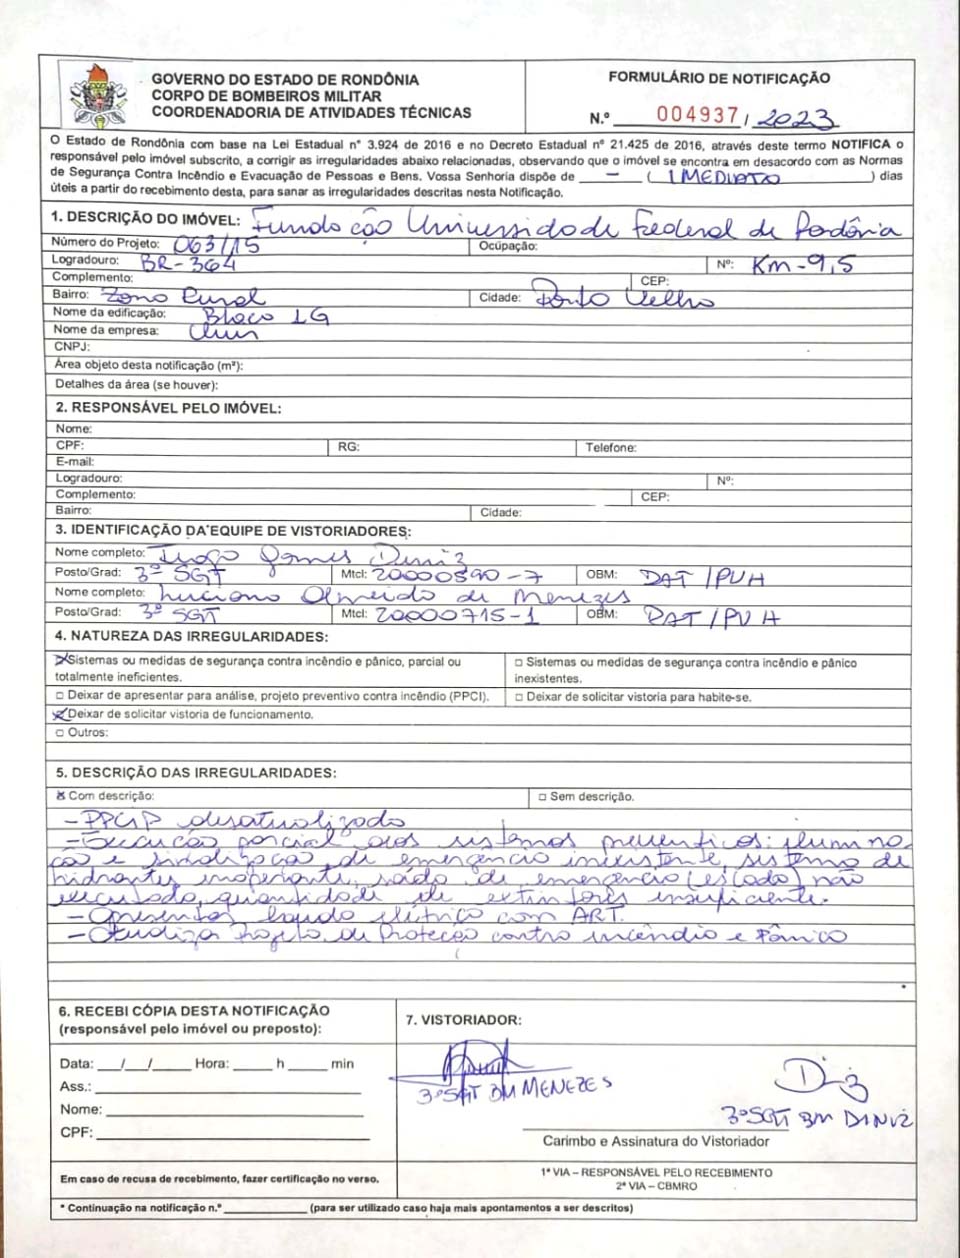 GOVERNO DO ESTADO DE RONDÔNIA
CORPO DE BOMBEIROS MILITAR
COORDENADORIA DE ATIVIDADES TÉCNICAS
FORMULÁRIO DE NOTIFICAÇÃO
N.º 004937 / 2023
O Estado de Rondônia com base na Lei Estadual n° 3.924 de 2016 e no Decreto Estadual n° 21.425 de 2016, através deste termo NOTIFICA o
responsável pelo imóvel subscrito, a corrigir as irregularidades abaixo relacionadas, observando que o imóvel se encontra em desacordo com as Normas
de Segurança Contra Incêndio e Evacuação de Pessoas e Bens. Vossa Senhoria dispõe de — ( IMEDIATO ) dias
úteis a partir do recebimento desta, para sanar as irregularidades descritas nesta Notificação.
1. DESCRIÇÃO DO IMÓVEL: Fundação Universidade Federal de Rondônia
Número do Projeto: 063/15 Ocupação:
Logradouro: BR-364 Nº: Km-9,5
Complemento: CEP:
Bairro: Zona Rural Cidade: Porto Velho
Nome da edificação: Bloco 1G
Nome da empresa:
CNPJ:
Área objeto desta notificação (m²):
Detalhes da área (se houver):
2. RESPONSÁVEL PELO IMÓVEL:
Nome:
CPF: RG: Telefone:
E-mail:
Logradouro: Nº:
Complemento: CEP:
Bairro: Cidade:
3. IDENTIFICAÇÃO DA EQUIPE DE VISTORIADORES:
Nome completo: Tiago Gomes Diniz
Posto/Grad: 3º SGT Mtcl: 20000590-7 OBM: DAT/PVH
Nome completo: Luciano Almeida de Menezes
Posto/Grad: 3º SGT Mtcl: 20000715-1 OBM: DAT/PVH
4. NATUREZA DAS IRREGULARIDADES:
Sistemas ou medidas de segurança contra incêndio e pânico, parcial ou
totalmente ineficientes.
□ Sistemas ou medidas de segurança contra incêndio e pânico
inexistentes.
□ Deixar de apresentar para análise, projeto preventivo contra incêndio (PPCI). □ Deixar de solicitar vistoria para habite-se.
Deixar de solicitar vistoria de funcionamento.
□ Outros:
5. DESCRIÇÃO DAS IRREGULARIDADES:
Com descrição: □ Sem descrição.
- PPCIP desatualizado
- Execução parcial dos sistemas preventivos: ilumina-
ção e sinalização de emergência inexistente, sistema de
hidrantes inoperante, saída de emergência (escada) não
executada, quantidade de extintores insuficiente.
- Apresentar laudo elétrico com ART.
- Atualizar Projeto de Proteção contra incêndio e Pânico
6. RECEBI CÓPIA DESTA NOTIFICAÇÃO
(responsável pelo imóvel ou preposto):
Data: ___/___/_____ Hora: _____ h _____ min
Ass.:
Nome:
CPF:
Em caso de recusa de recebimento, fazer certificação no verso.
7. VISTORIADOR:
3º SGT BM MENEZES
3º SGT BM DINIZ
Carimbo e Assinatura do Vistoriador
1ª VIA – RESPONSÁVEL PELO RECEBIMENTO
2ª VIA – CBMRO
* Continuação na notificação n.º ____________ (para ser utilizado caso haja mais apontamentos a ser descritos)